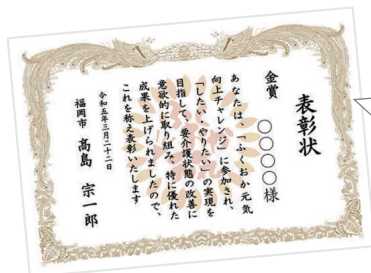 表彰状
金賞 ○○○○様
あなたは、「ふくおか元気
向上チャレンジ」に参加され、
「したい、やりたい」の実現を
目指して、要介護状態の改善に
意欲的に取り組み、特に優れた
成果を上げられましたので、
これを称え表彰いたします
令和五年三月二十二日
福岡市 高島 宗一郎